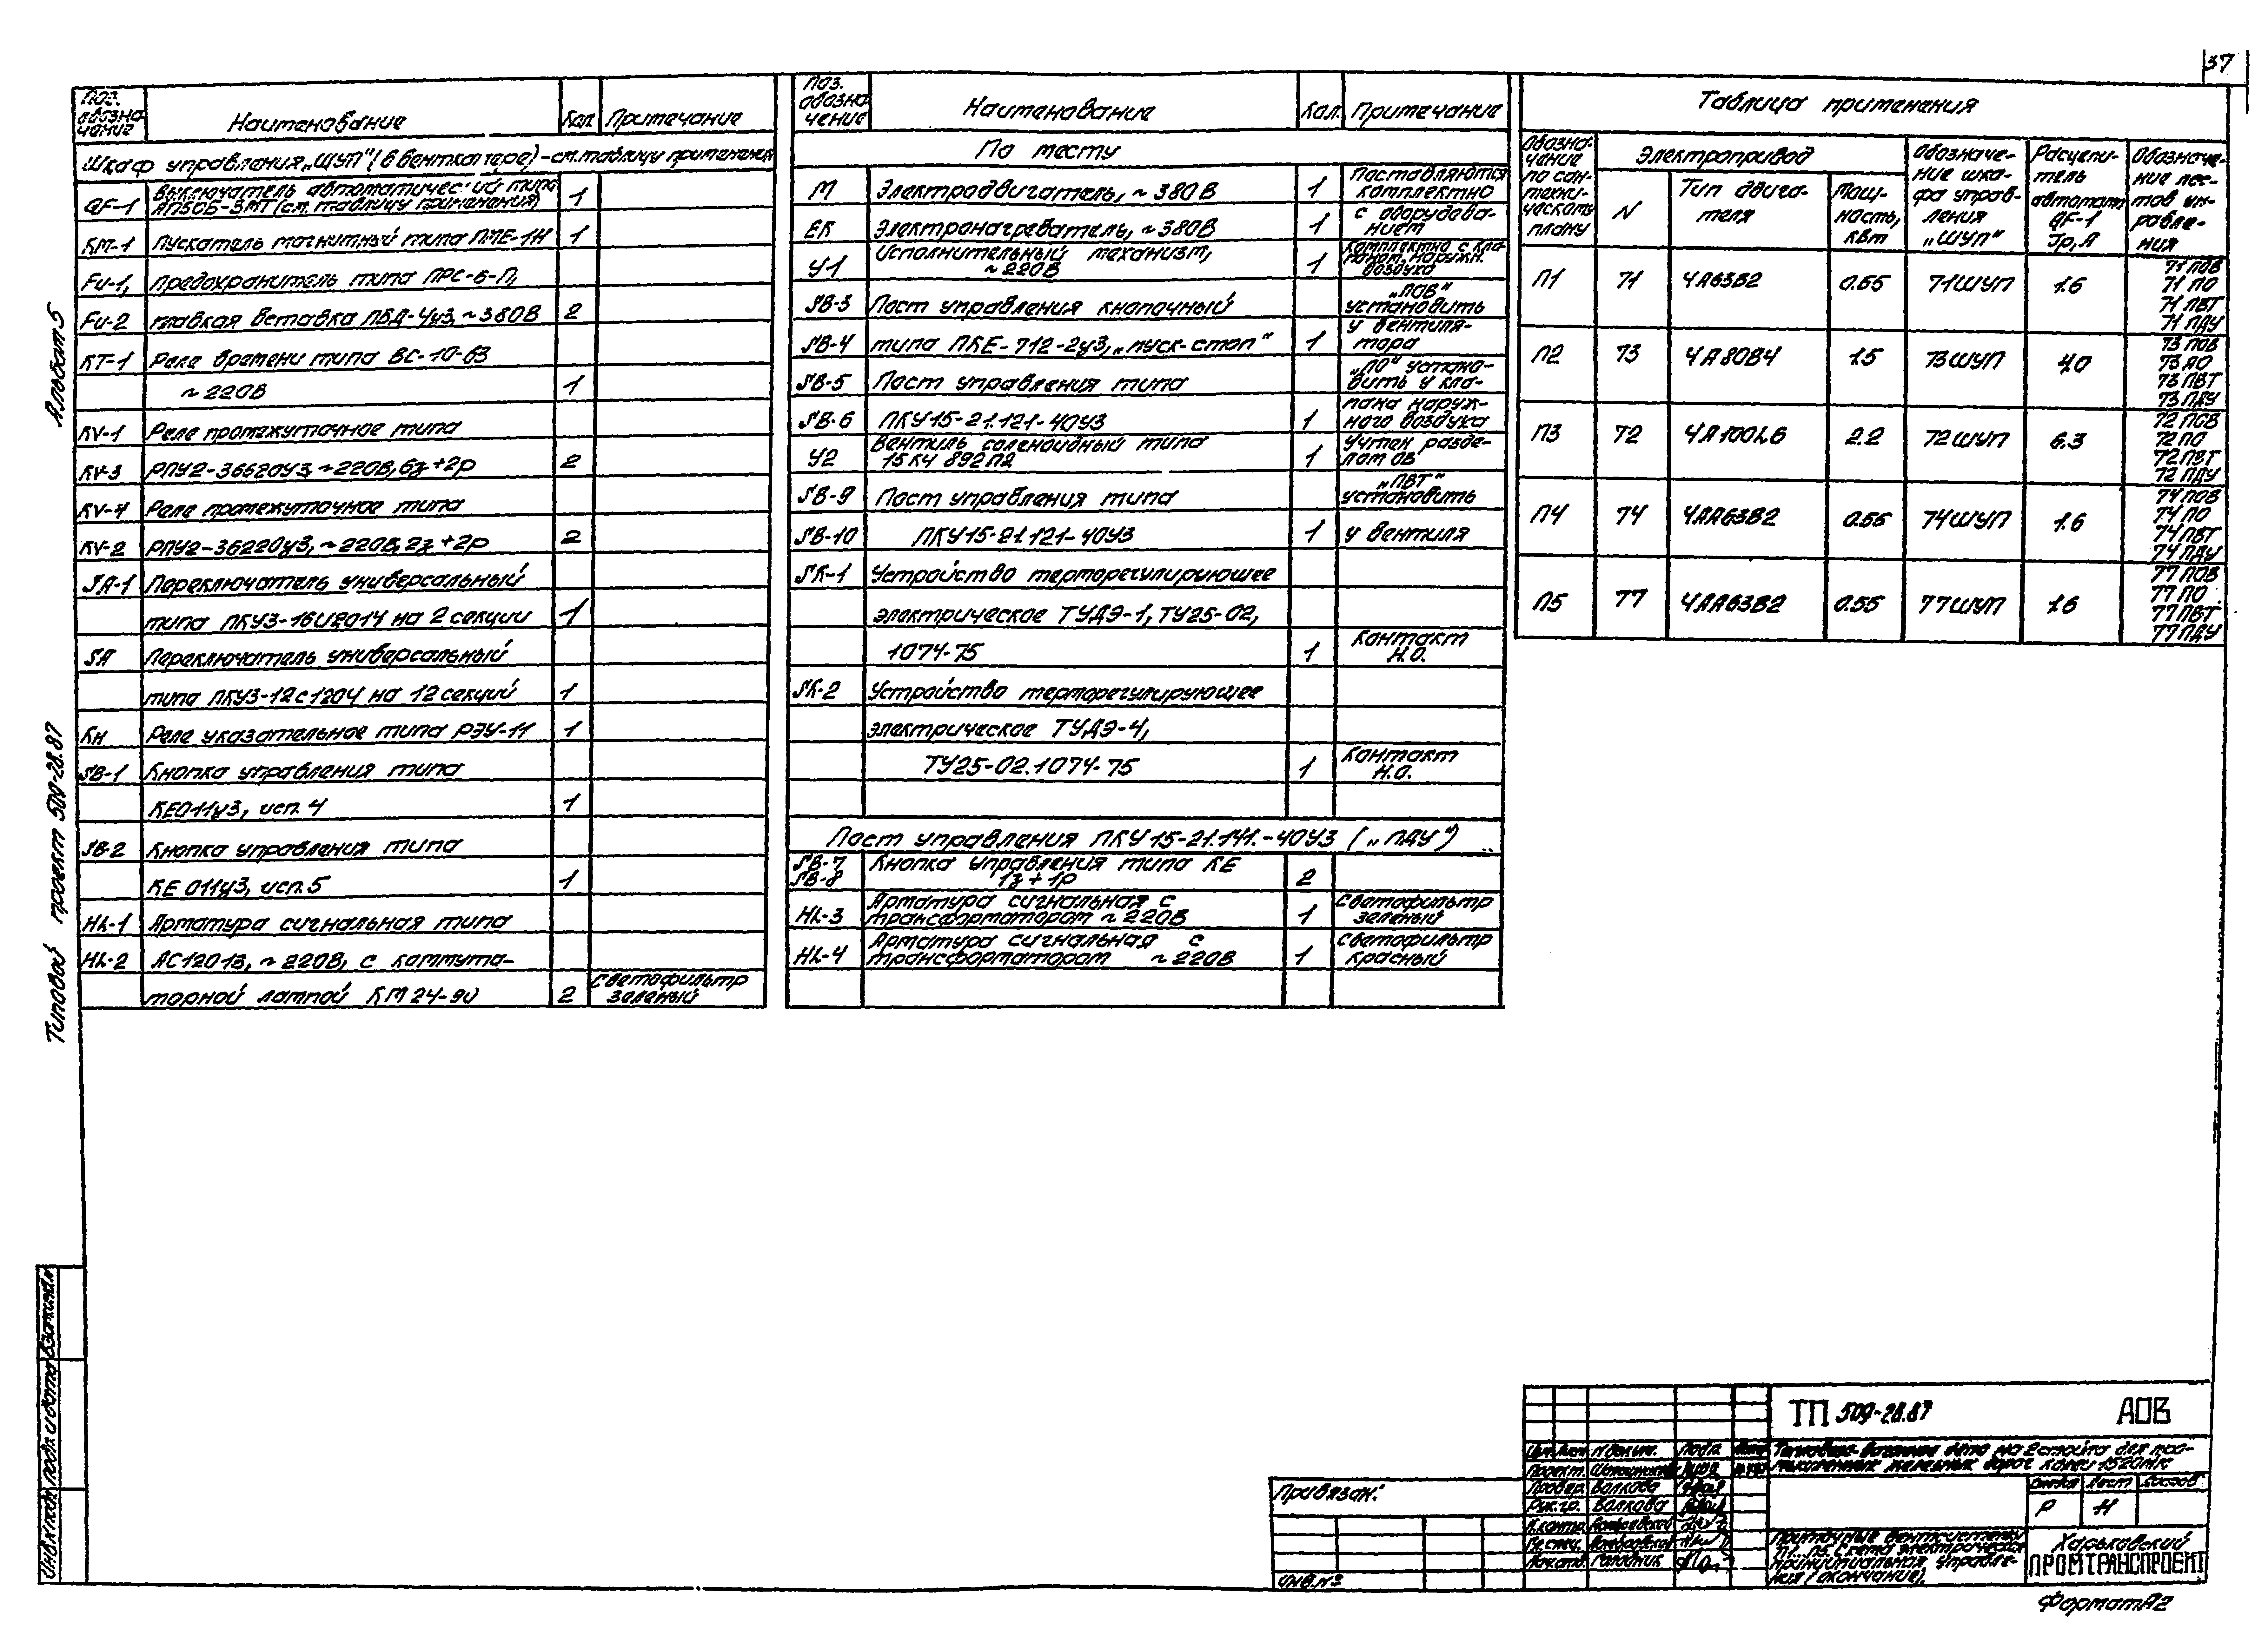 37
Поз. обозна- чение Наименование Кол. Примечание
Шкаф управления „ШУП" (в венткамере) - см. таблицу применения
QF-1 Выключатель автоматический типа АП50Б-3МТ (см. таблицу применения) 1
КМ-1 Пускатель магнитный типа ПМЕ-1Н 1
FU-1, Предохранитель типа ПРС-6-П,
FU-2 плавкая вставка ПВД-4У3, ~380В 2
КТ-1 Реле времени типа ВС-10-63
~220В 1
KV-1 Реле промежуточное типа
KV-3 РПУ2-36620У3, ~220В, 6з+2р 2
KV-4 Реле промежуточное типа
KV-2 РПУ2-36220У3, ~220В, 2з+2р 2
SA-1 Переключатель универсальный
типа ПКУ3-16И2014 на 2 секции 1
SA Переключатель универсальный
типа ПКУ3-12с1204 на 12 секций 1
КН Реле указательное типа РЭУ-11 1
SB-1 Кнопка управления типа
КЕ011У3, исп. 4 1
SB-2 Кнопка управления типа
КЕ 011У3, исп. 5 1
HL-1 Арматура сигнальная типа
HL-2 АС12013, ~220В, с коммута-
торной лампой КМ 24-90 2 Светофильтр зеленый
Поз. обозна- чение Наименование Кол. Примечание
По месту
М Электродвигатель, ~380В 1 Поставляются комплектно
ЕК Электронагреватель, ~380В 1 с оборудова- нием
У1 Исполнительный механизм, ~220В 1 Комплектно с кла- паном наружн. воздуха
SB-3 Пост управления кнопочный „ПОВ" установить
SB-4 типа ПКЕ-712-2У3, „пуск-стоп" 1 у вентиля- тора
SB-5 Пост управления типа „ПО" устано- вить у кла-
SB-6 ПКУ15-21.121-40У3 1 пана наруж- ного воздуха
У2 Вентиль соленоидный типа 15КЧ 892П2 1 Учтен разде- лом ОВ
SB-9 Пост управления типа „ПВТ" установить
SB-10 ПКУ15-21.121-40У3 1 у вентиля
SK-1 Устройство терморегулирующее
электрическое ТУДЭ-1, ТУ25-02,
1074-75 1 Контакт Н.О.
SK-2 Устройство терморегулирующее
электрическое ТУДЭ-4,
ТУ25-02.1074-75 1 Контакт Н.О.
Пост управления ПКУ15-21.141.-40У3 („ПДУ")
SB-7 SB-8 Кнопка управления типа КЕ 1з+1р 2
HL-3 Арматура сигнальная с трансформатором ~220В 1 Светофильтр зеленый
HL-4 Арматура сигнальная с трансформатором ~220В 1 Светофильтр красный
Таблица применения
Обозна- чение по сан- техни- ческому плану Электропривод N Тип двига- теля Мощ- ность, кВт Обозначе- ние шка- фа управ- ления „ШУП" Расцепи- тель автомат. QF-1 Iр, А Обозначе- ние пос- тов уп- равле- ния
П1 71 4АА63В2 0.55 71ШУП 1.6 71 ПОВ 71 ПО 71 ПВТ 71 ПДУ
П2 73 4А80В4 1.5 73ШУП 4,0 73 ПОВ 73 ПО 73 ПВТ 73 ПДУ
П3 72 4А100L6 2.2 72ШУП 6.3 72 ПОВ 72 ПО 72 ПВТ 72 ПДУ
П4 74 4АА63В2 0.55 74ШУП 1.6 74 ПОВ 74 ПО 74 ПВТ 74 ПДУ
П5 77 4АА63В2 0.55 77ШУП 1.6 77 ПОВ 77 ПО 77 ПВТ 77 ПДУ
Альбом 5
Типовой проект 509-28.87
Инв.№ подл. Подп. и дата Взам.инв.№
Привязан:
Инв.№
ТП 509-28.87 АОВ
Изм. Лист № докум. Подп. Дата
Проект.
Провер. Волкова
Рук.гр. Волкова
Н.контр.
Гл.спец.
Нач.отд. Голодник
депо на 2 стойла для про-
мышленных железных дорог колеи 1520мм
Стадия Лист Листов
Р
Приточные вентсистемы
П1...П5. Схема электрическая
принципиальная управле-
ния (окончание).
Харьковский
ПРОМТРАНСПРОЕКТ
Формат А2